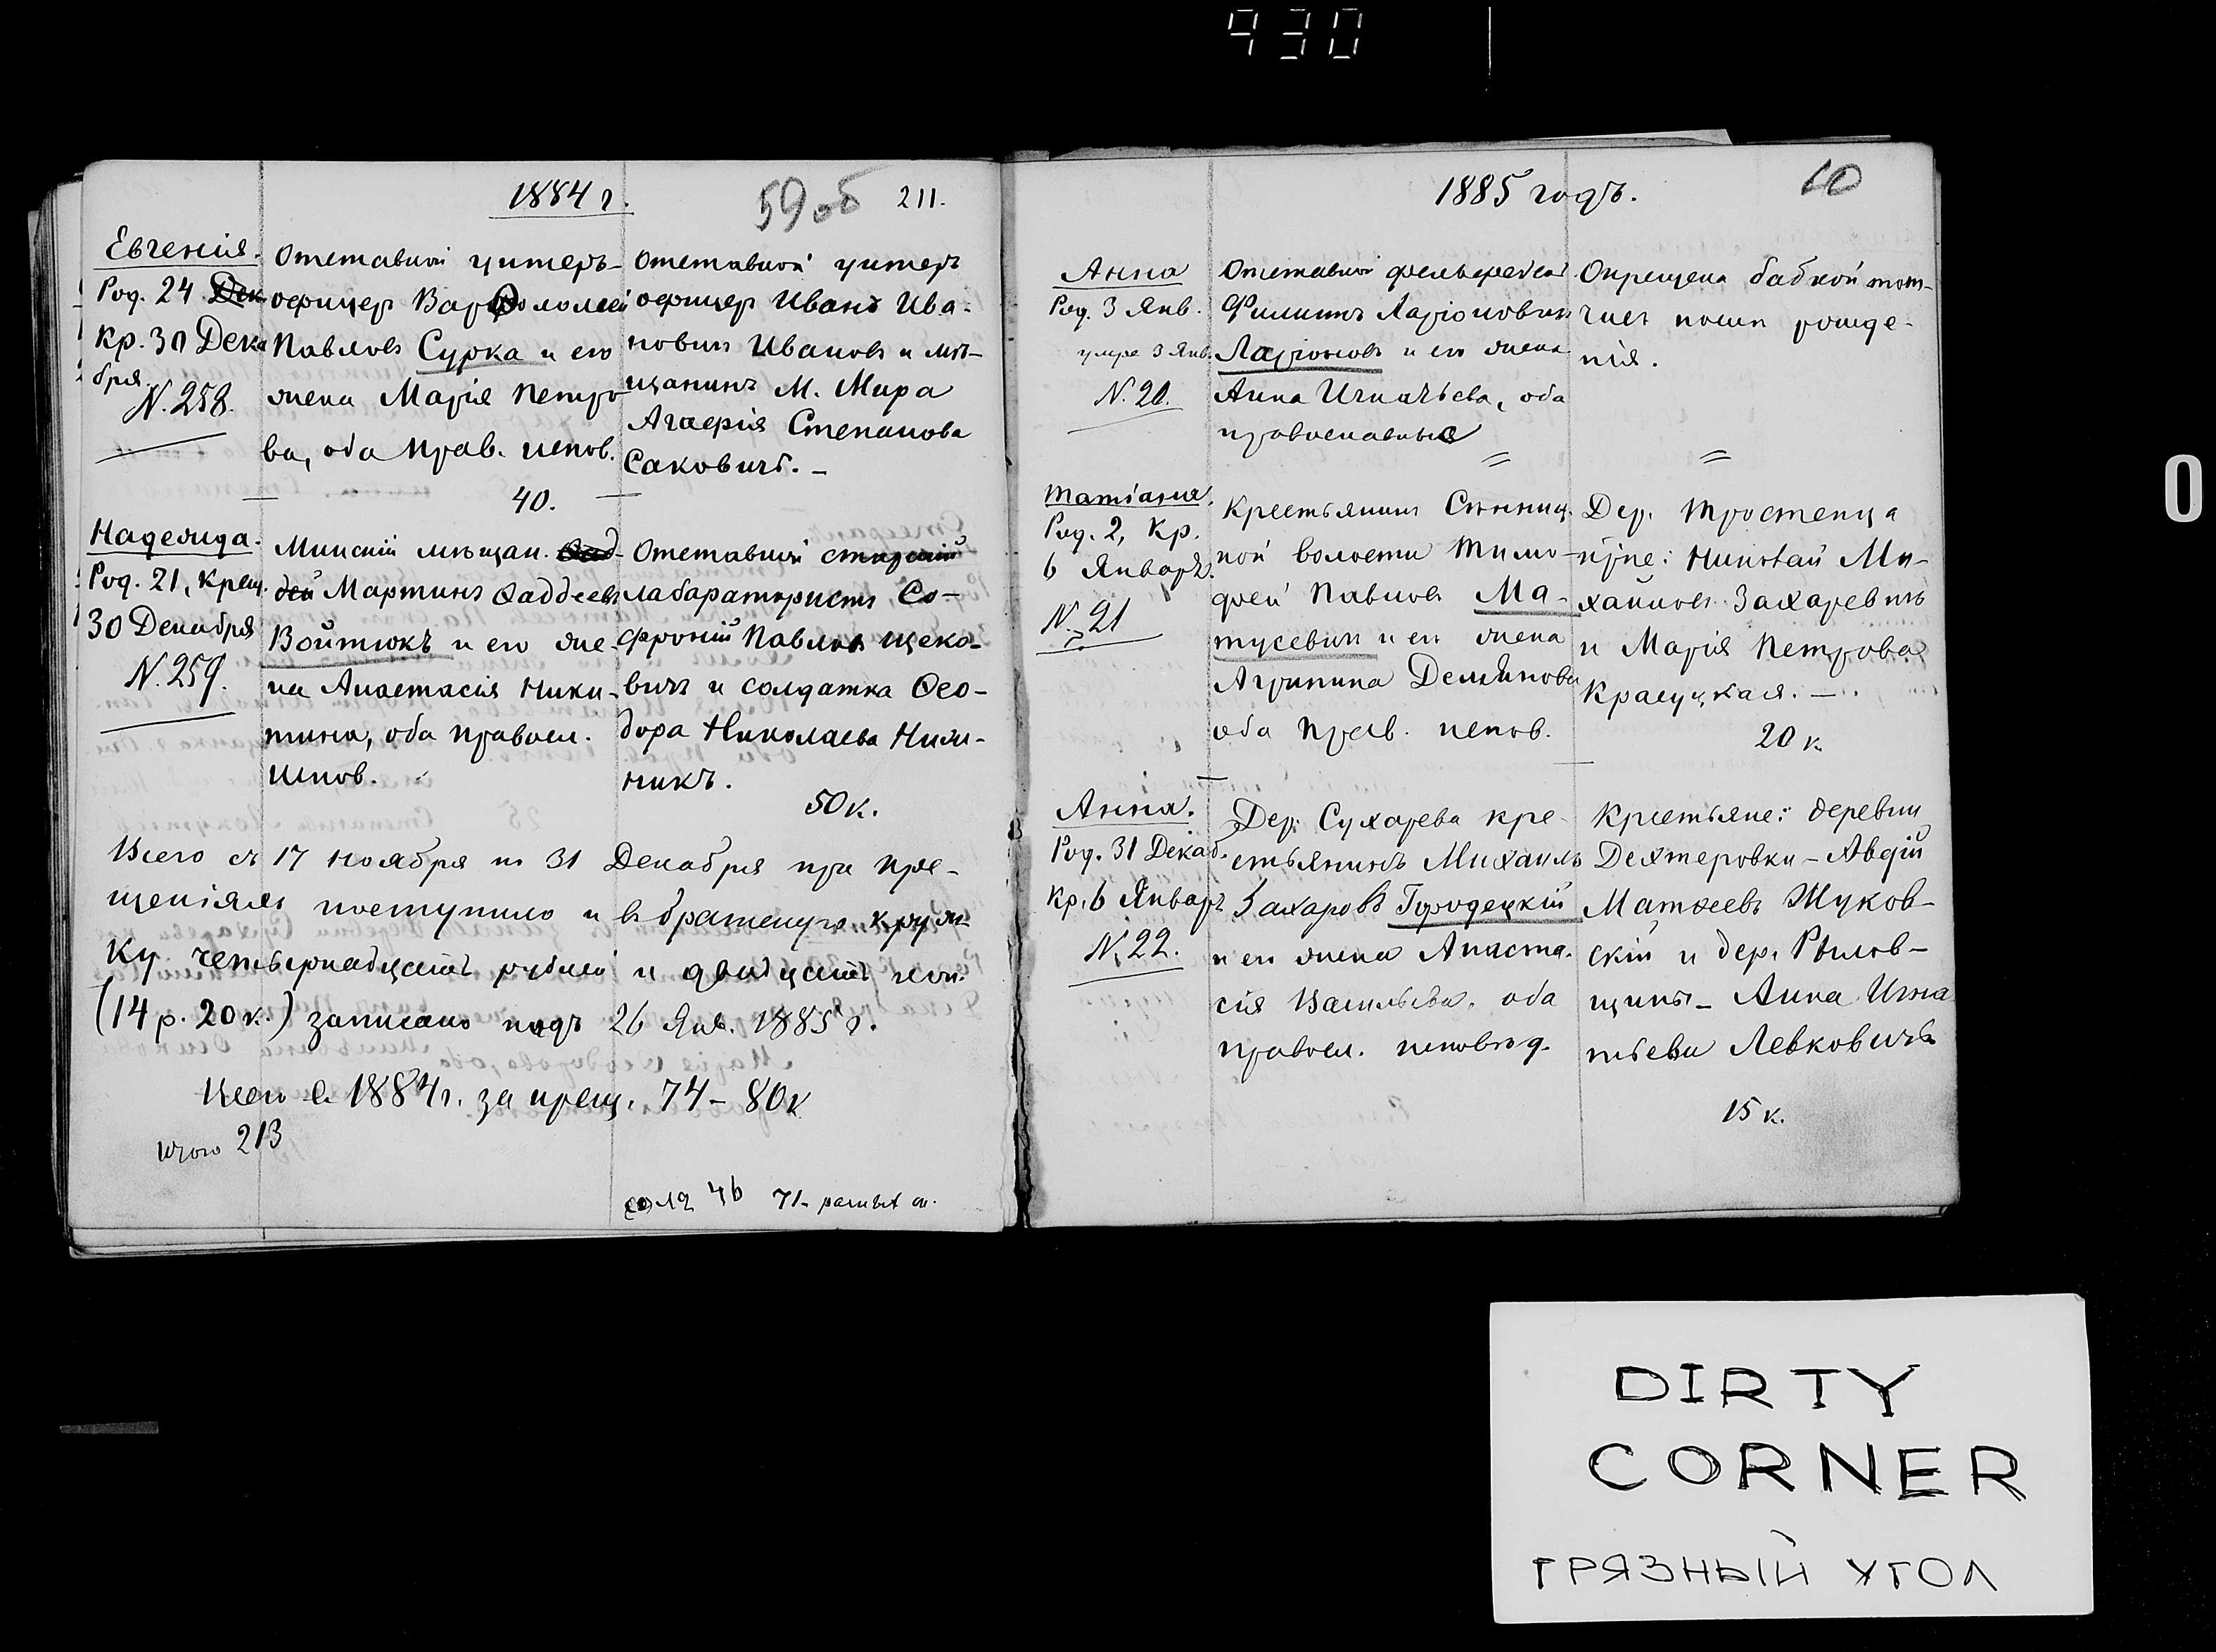 930
1884 г.
59 об
211.
Евгенія.
Род. 24 Дек
Кр. 30 Дека
бря.
N. 258.
Отставной унтеръ-
офицер Варѳоломей
Павловъ Сурка и его
жена Марія Петро
ва, оба прав. испов.
40.
Отставной унтеръ
офицер Иванъ Ива-
новичъ Ивановъ и мѣ-
щанинъ М. Мира
Агафія Степанова
Саковичъ. -
Надежда.
Род. 21, крещ.
30 Декабря
N. 259.
Минскій мѣщан. Ѳад-
дей Мартинъ Ѳаддеевъ
Войтюкъ и его же-
на Анастасія Ники-
тина, оба правосл.
испов.
Отставной старшій
лабаратористъ Со-
фроній Павловъ Щеко-
вичъ и солдатка Ѳео-
дора Николаева
никъ.
50 к.
Всего съ 17 ноября по 31 Декабря при кре-
щеніяхъ поступило и въ братскую круж-
ку четырнадцать рублей и двадцать коп.
(14 р. 20 к.) записано подъ 26 Янв. 1885 г.
Всего в 1884 г. за крещ. 74 - 80 к
Итого 213
46 71-
1885 годъ.
60
Анна
Род. 3 Янв.
умре 3 Янв.
N. 20.
Отставной фельдфебель
Филиппъ Ларіоновичъ
Ларіоновъ и его жена
Анна Игнатьева, оба
православные
Окрещена бабкой тот-
часъ послѣ рожде-
нія.
Татіана.
Род. 2, Кр.
6 Январѣ.
N. 21
Крестьянинъ Сѣнниц-
кой волости Тимо-
фей Павловъ Ма-
тусевичъ и его жена
Агрипина Демьянова
оба прав. испов.
Дер. Тростенца
кр-не: Николай Ми-
хайловъ Захаревичъ
и Марія Петрова
Красуцкая. -
20 к.
Анна.
Род. 31 Декаб.
Кр. 6 Январѣ
N. 22.
Дер. Сухарева кре-
стьянинъ Михаилъ
Захаровъ Городецкій
и его жена Анаста-
сія Васильева, оба
правосл. исповѣд.
Крестьяне: деревни
Дехтеровки - Авдій
Матѳеевъ Жуков-
скій и дер. Рылов-
щины - Анна Игна
тьева Левковичъ
15 к.
0
DIRTY
CORNER
ГРЯЗНЫЙ УГОЛ